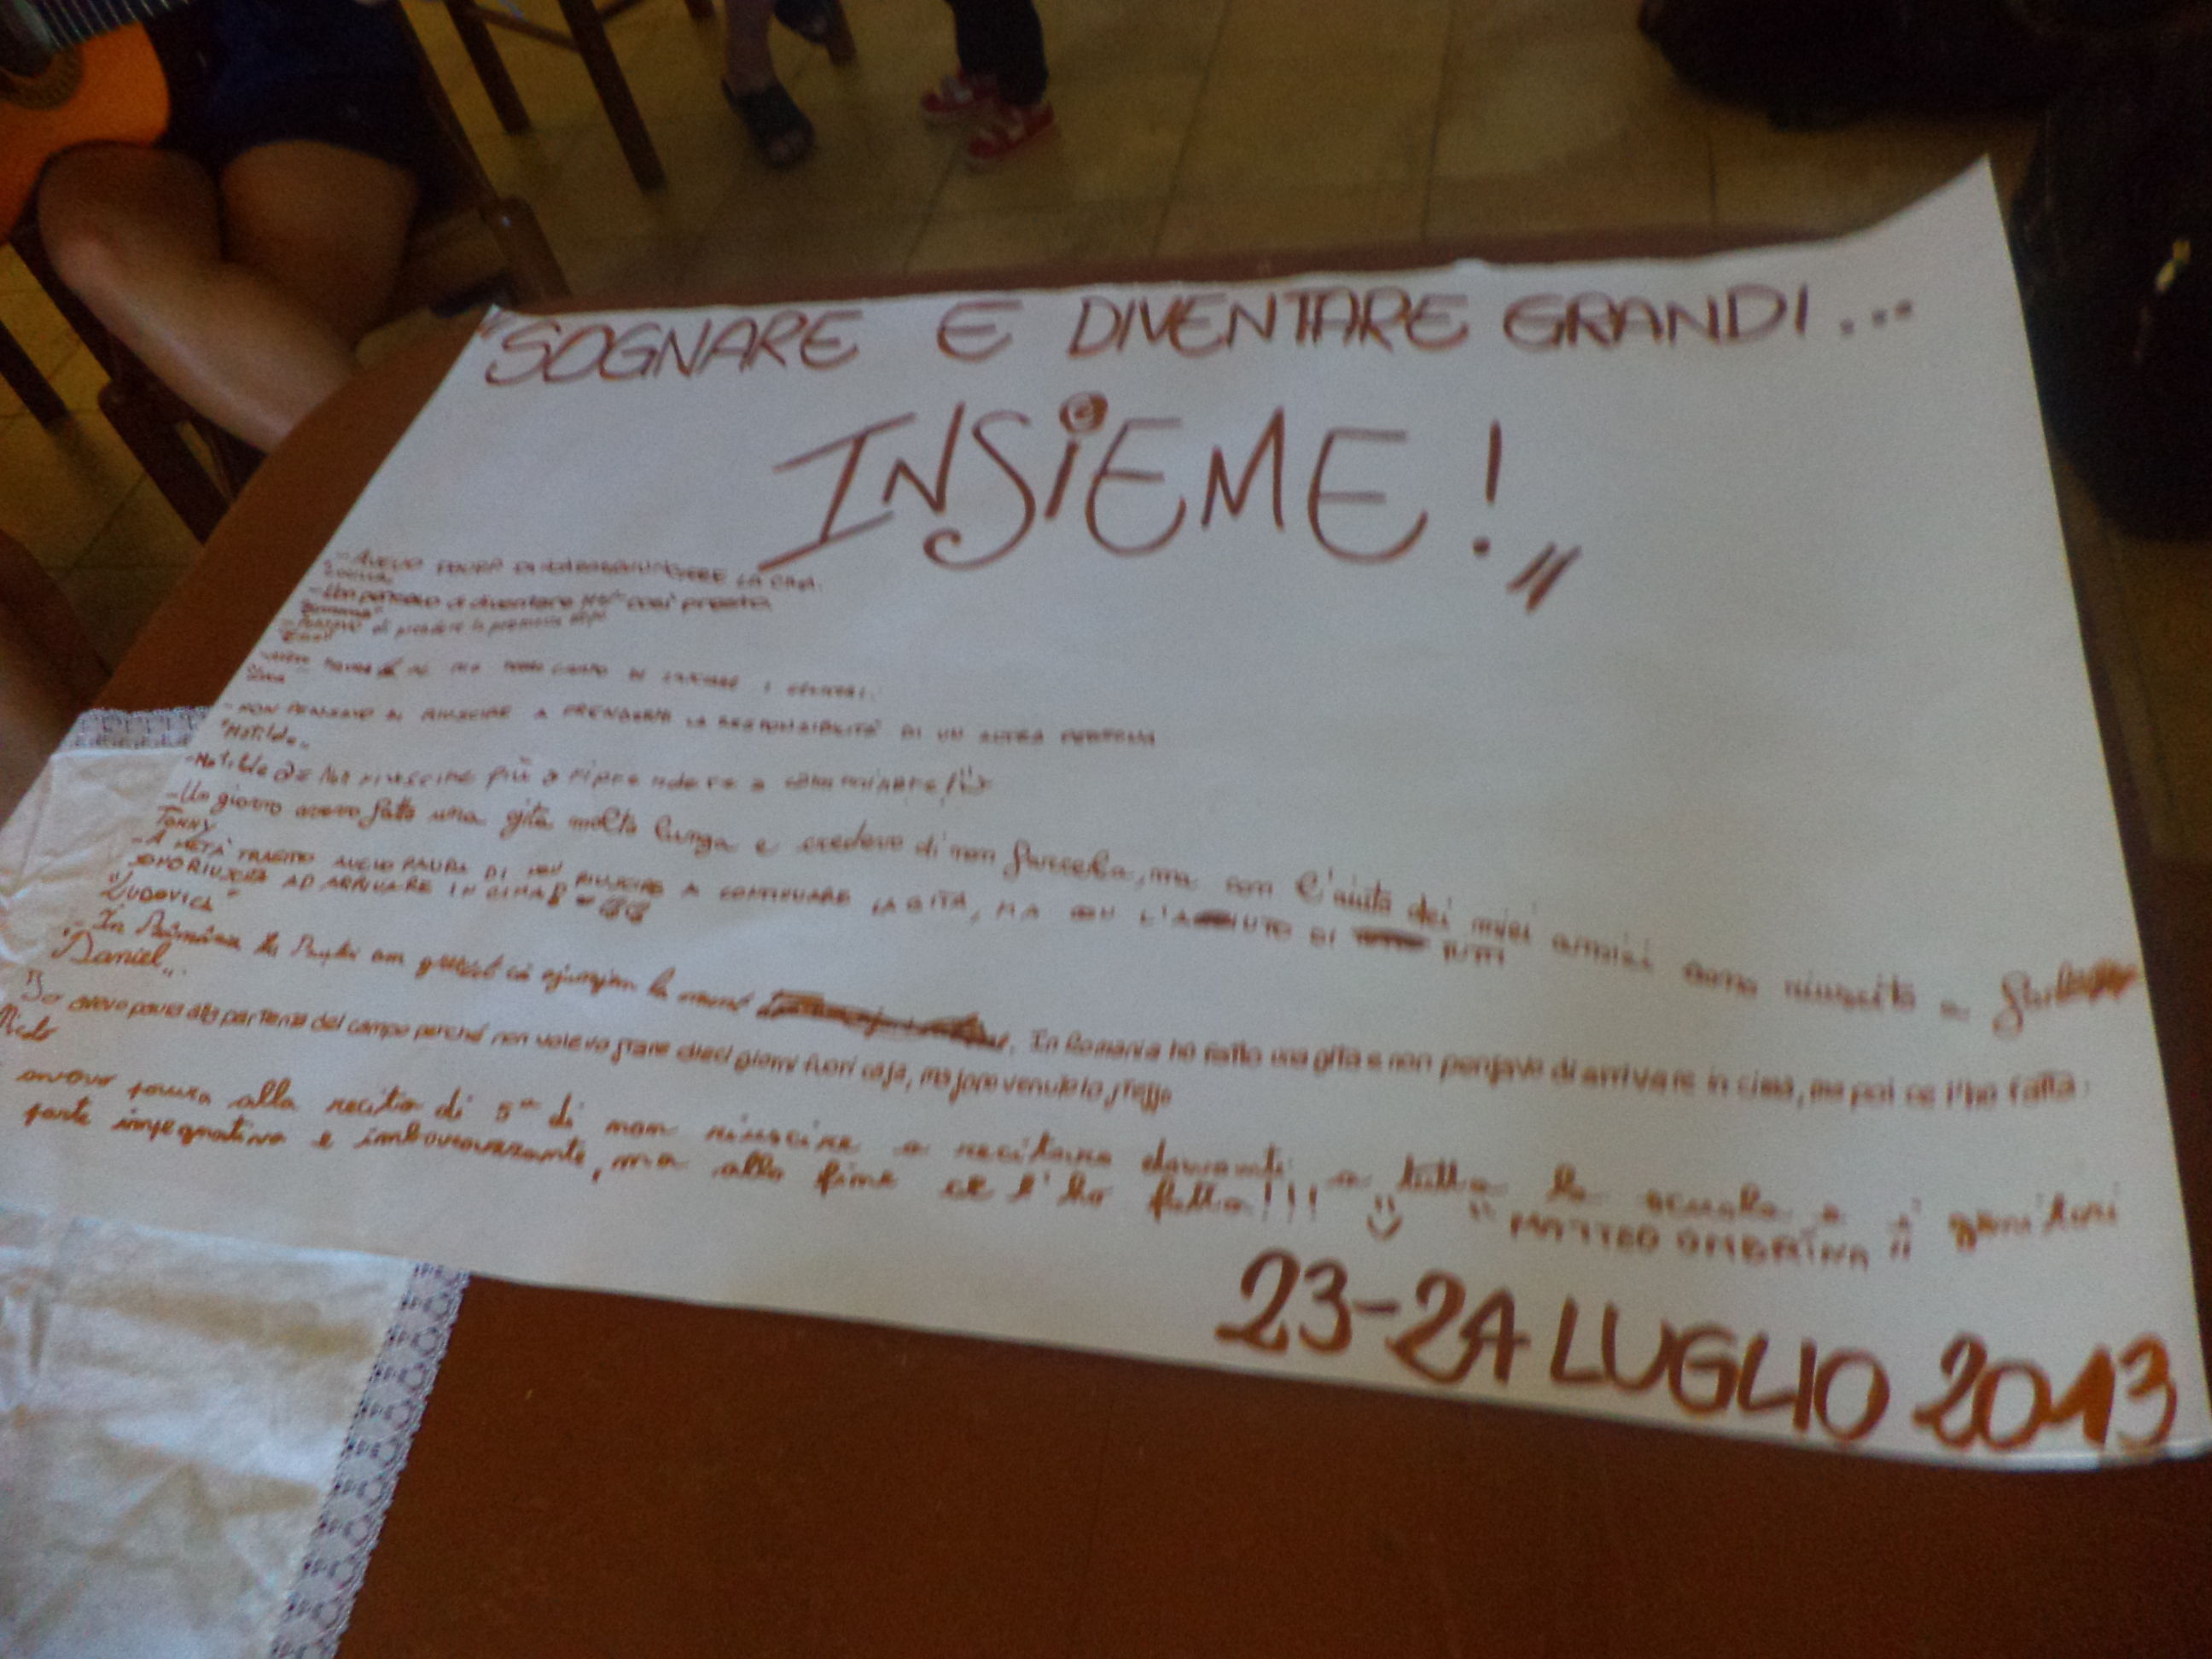 "SOGNARE E DIVENTARE GRANDI...
INSIEME!"
- AVEVO PAURA DI LA CIMA.
- Un pensavo di diventare così presto.
- Pensavo di prendere la
- NON PENSAVO DI RIUSCIRE A PRENDERMI LA RESPONSABILITÀ DI UN ALTRA PERSONA
"Matilde"
- Matilde Non riuscire più a riprendere a camminare!
- Un giorno avevo fatto una gita molto lunga e credevo di non farcela, ma con l'aiuto dei miei amici sono riuscito a
TOMMY
- A METÀ TRAGITTO AVEVO PAURA DI NON RIUSCIRE A CONTINUARE LA GITA, MA CON L'AIUTO DI TUTTI
SONO RIUSCITA AD ARRIVARE IN CIMA
"LUDOVICA"
- In România la am crezut că ajungem la . In Romania ho fatto una gita e non pensavo di arrivare in cima, ma poi ce l'ho fatta.
Daniel
Io avevo paura alla partenza del campo perché non volevo stare dieci giorni fuori casa, ma sono venuto lo stesso
avevo paura alla recita di 5ª di non riuscire a recitare davanti a tutta la scuola e i genitori
parte impegnativa e imbarazzante, ma alla fine ce l'ho fatta!!! "MATTEO OMBRINA"
23-24 LUGLIO 2013